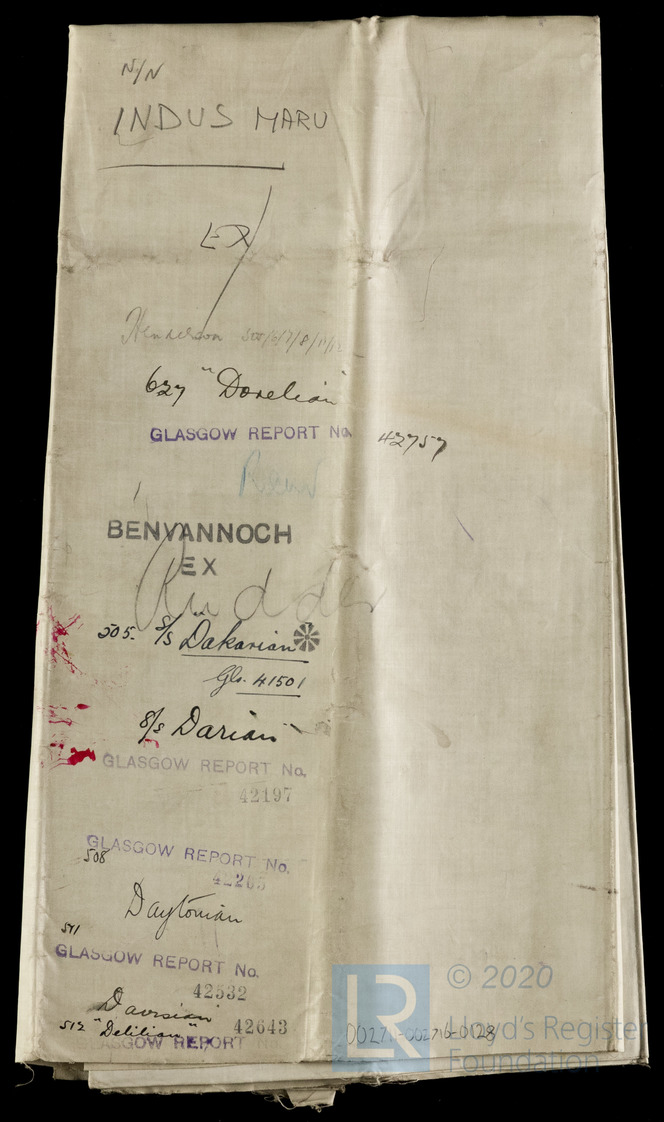 N/N
INDUS MARU
EX
Henderson 505/6/7/8/11/12
627 "Dorelian"
GLASGOW REPORT No. 42757
BENVANNOCH
EX
Rudder
505. S/S "Dakarian"
Gls. 41501
S/S Darian
GLASGOW REPORT No.
42197
GLASGOW REPORT No.
508 42265
Daytonian
511
GLASGOW REPORT No.
42532
Davisian
512 "Delilian" 42643
GLASGOW REPORT No.
LR
© 2020
Lloyd's Register
Foundation